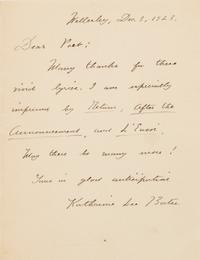 Wellesley, Dec. 8, 1928.
Dear Poet:
Many thanks for these
vivid lyrics. I am especially
impressed by Return, After the
Announcement, and L'Envoi.
May there be many more!
Yours in glad anticipation
Katharine Lee Bates